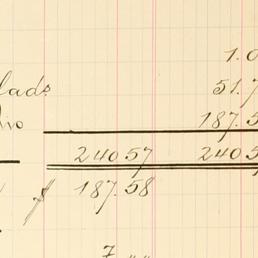 1.0
lads 51.7
dio 187.5
240 57 240 5
$ 187.58
7 " "